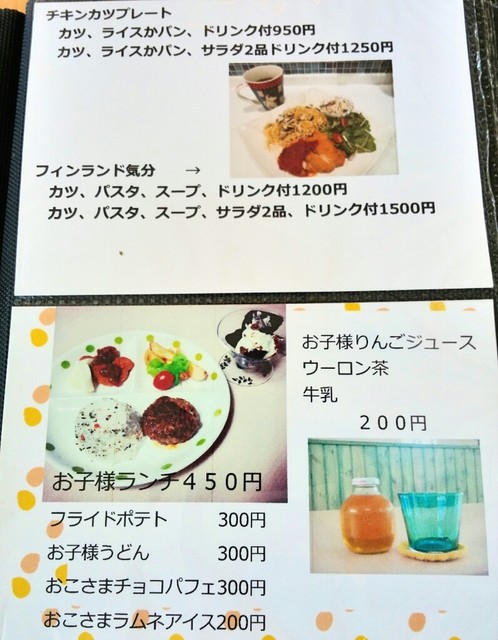 チキンカツプレート
カツ、ライスかパン、ドリンク付950円
カツ、ライスかパン、サラダ2品ドリンク付1250円
フィンランド気分　→
カツ、パスタ、スープ、ドリンク付1200円
カツ、パスタ、スープ、サラダ2品、ドリンク付1500円
お子様ランチ４５０円
フライドポテト　300円
お子様うどん　300円
おこさまチョコパフェ300円
おこさまラムネアイス200円
お子様りんごジュース
ウーロン茶
牛乳
２００円